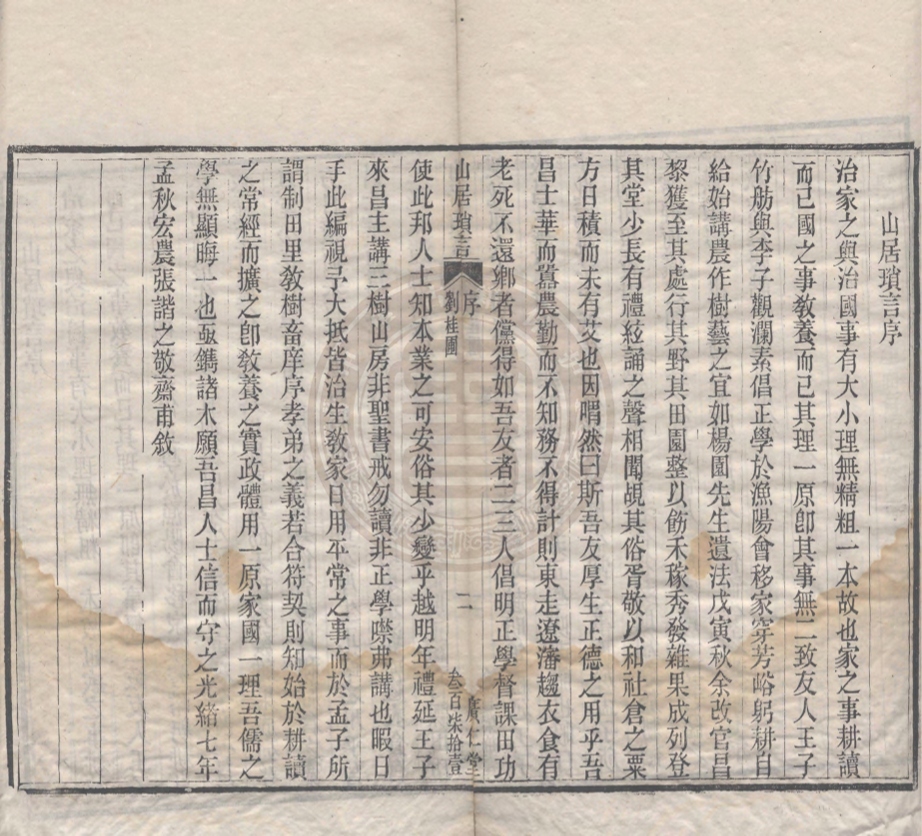 山居瑣言序
治家之與治國事有大小理無精粗一本故也家之事耕讀
而已國之事教養而已其理一原卽其事無二致友人王子
竹舫與李子觀瀾素倡正學於漁陽會移家穿芳峪躬耕自
給始講農作樹藝之宜如楊園先生遺法戊寅秋余改官昌
黎獲至其處行其野其田園整以飭禾稼秀發雜果成列登
其堂少長有禮絃誦之聲相聞覘其俗胥敬以和社倉之粟
方日積而未有艾也因喟然曰斯吾友厚生正德之用乎吾
昌士華而囂農勤而不知務不得計則東走遼瀋趨衣食有
老死不還鄉者儻得如吾友者二三人倡明正學督課田功
山居瑣言
序
劉桂圃
二
廣仁堂
叁百柒拾壹
使此邦人士知本業之可安俗其少變乎越明年禮延王子
來昌主講三樹山房非聖書戒勿讀非正學噤弗講也暇日
手此編視予大抵皆治生教家日用平常之事而於孟子所
謂制田里教樹畜庠序孝弟之義若合符契則知始於耕讀
之常經而擴之卽敎養之實政體用一原家國一理吾儒之
學無顯晦一也亟鐫諸木願吾昌人士信而守之光緒七年
孟秋宏農張諧之敬齋甫敘